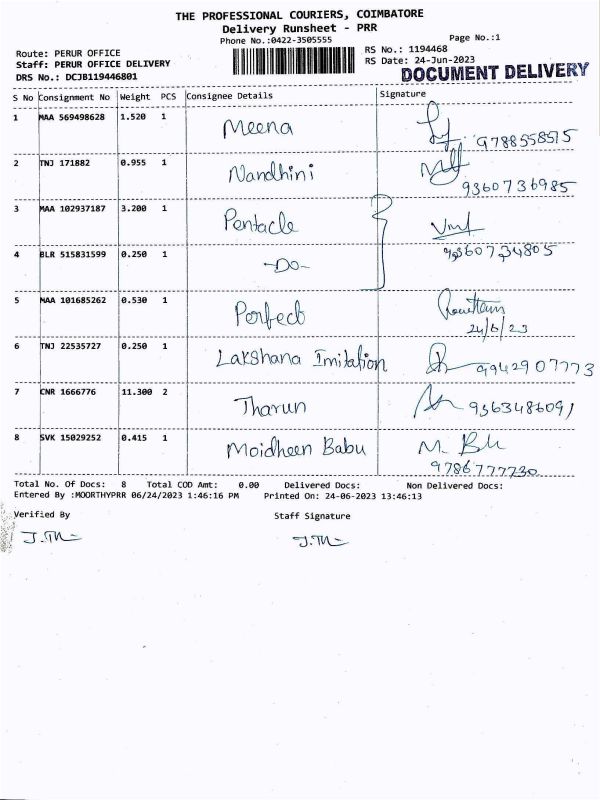 THE PROFESSIONAL COURIERS, COIMBATORE
Delivery Runsheet - PRR
Phone No.:0422-3505555
Page No.:1
Route: PERUR OFFICE
RS No.: 1194468
Staff: PERUR OFFICE DELIVERY
RS Date: 24-Jun-2023
DRS No.: DCJB119446801
DOCUMENT DELIVERY
S No Consignment No Weight PCS Consignee Details Signature
1 MAA 569498628 1.520 1 Meena 9788558515
2 TNJ 171882 0.955 1 Nandhini 9360736985
3 MAA 102937187 3.200 1 Pentacle
4 BLR 515831599 0.250 1 -Do- 9360734805
5 MAA 101685262 0.530 1 Perfect
24/6/23
6 TNJ 22535727 0.250 1 Lakshana Imitation 9942907773
7 CNR 1666776 11.300 2 Tharun 9363486091
8 SVK 15029252 0.415 1 Moidheen Babu
9786777730
Total No. Of Docs: 8 Total COD Amt: 0.00 Delivered Docs: Non Delivered Docs:
Entered By :MOORTHYPRR 06/24/2023 1:46:16 PM Printed On: 24-06-2023 13:46:13
Verified By Staff Signature